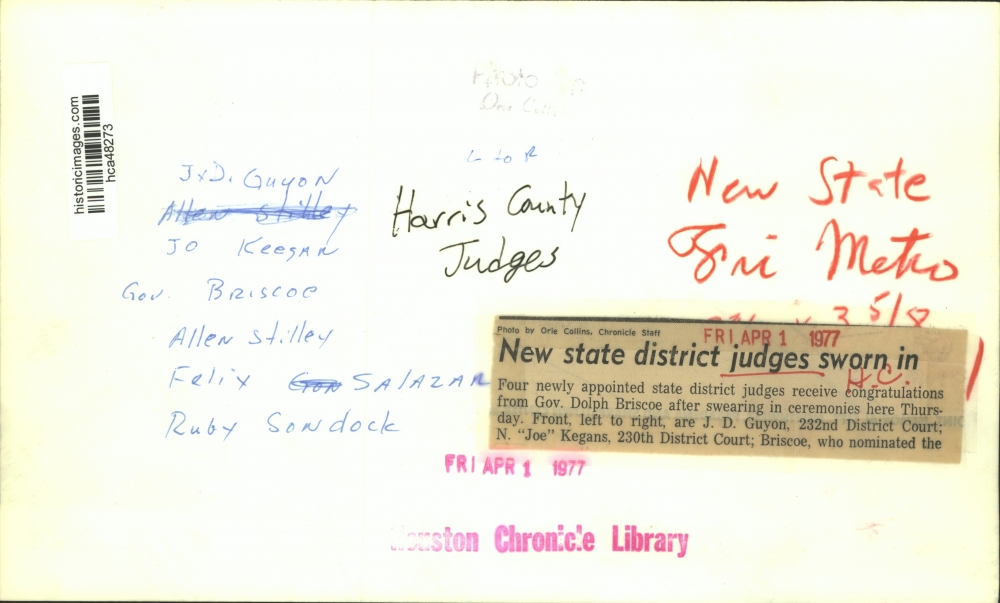 historicimages.com
hca48273
Photo
Orie
L to R
J.D. Guyon
Allen Stilley
Jo Keegan
Gov. Briscoe
Allen Stilley
Felix Salazar
Ruby Sondock
Harris County
Judges
New State
Fri Metro
3 5/8
Photo by Orie Collins, Chronicle Staff
FRI APR 1 1977
New state district judges sworn in
H.C.
Four newly appointed state district judges receive congratulations
from Gov. Dolph Briscoe after swearing in ceremonies here Thurs-
day. Front, left to right, are J. D. Guyon, 232nd District Court;
N. "Joe" Kegans, 230th District Court; Briscoe, who nominated the
FRI APR 1 1977
Houston Chronicle Library